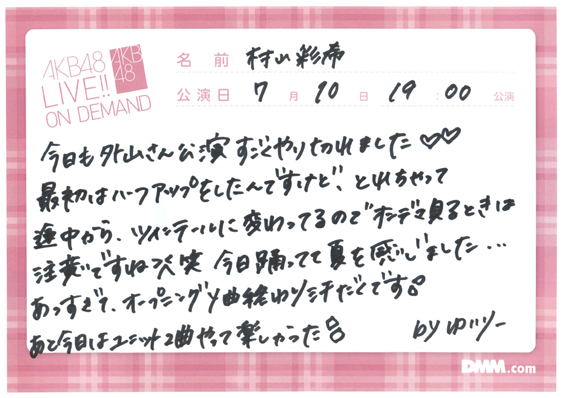 AKB48
LIVE!!
ON DEMAND
AKB
48
名前 村山彩希
公演日 7月10日 19:00公演
今日も外山さん公演すごくやり切れました♡♡
最初はハーフアップをしたんですけど、とれちゃって
途中から、ツインテールに変わってるのでオンデマ見るときは
注意ですね 笑 今日踊ってて夏を感じました...
あつすぎて、オープニング4曲終わり汗だくです
あと今日はユニット2曲やって楽しかった
by ゆいりー
DMM.com